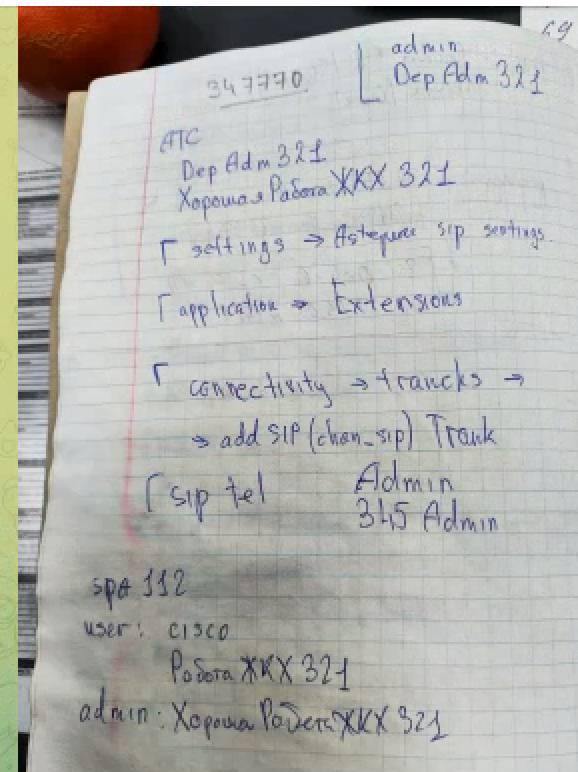 69
admin
Dep Adm 321
347770
АТС
Dep Adm 321
Хорошая Работа ЖКХ 321
settings → sip
application → Extensions
connectivity → trancks →
→ add SIP (chan_sip) Trank
sip tel Admin
345 Admin
spa 112
user: cisco
Работа ЖКХ 321
admin: Хороша Работа ЖКХ 321